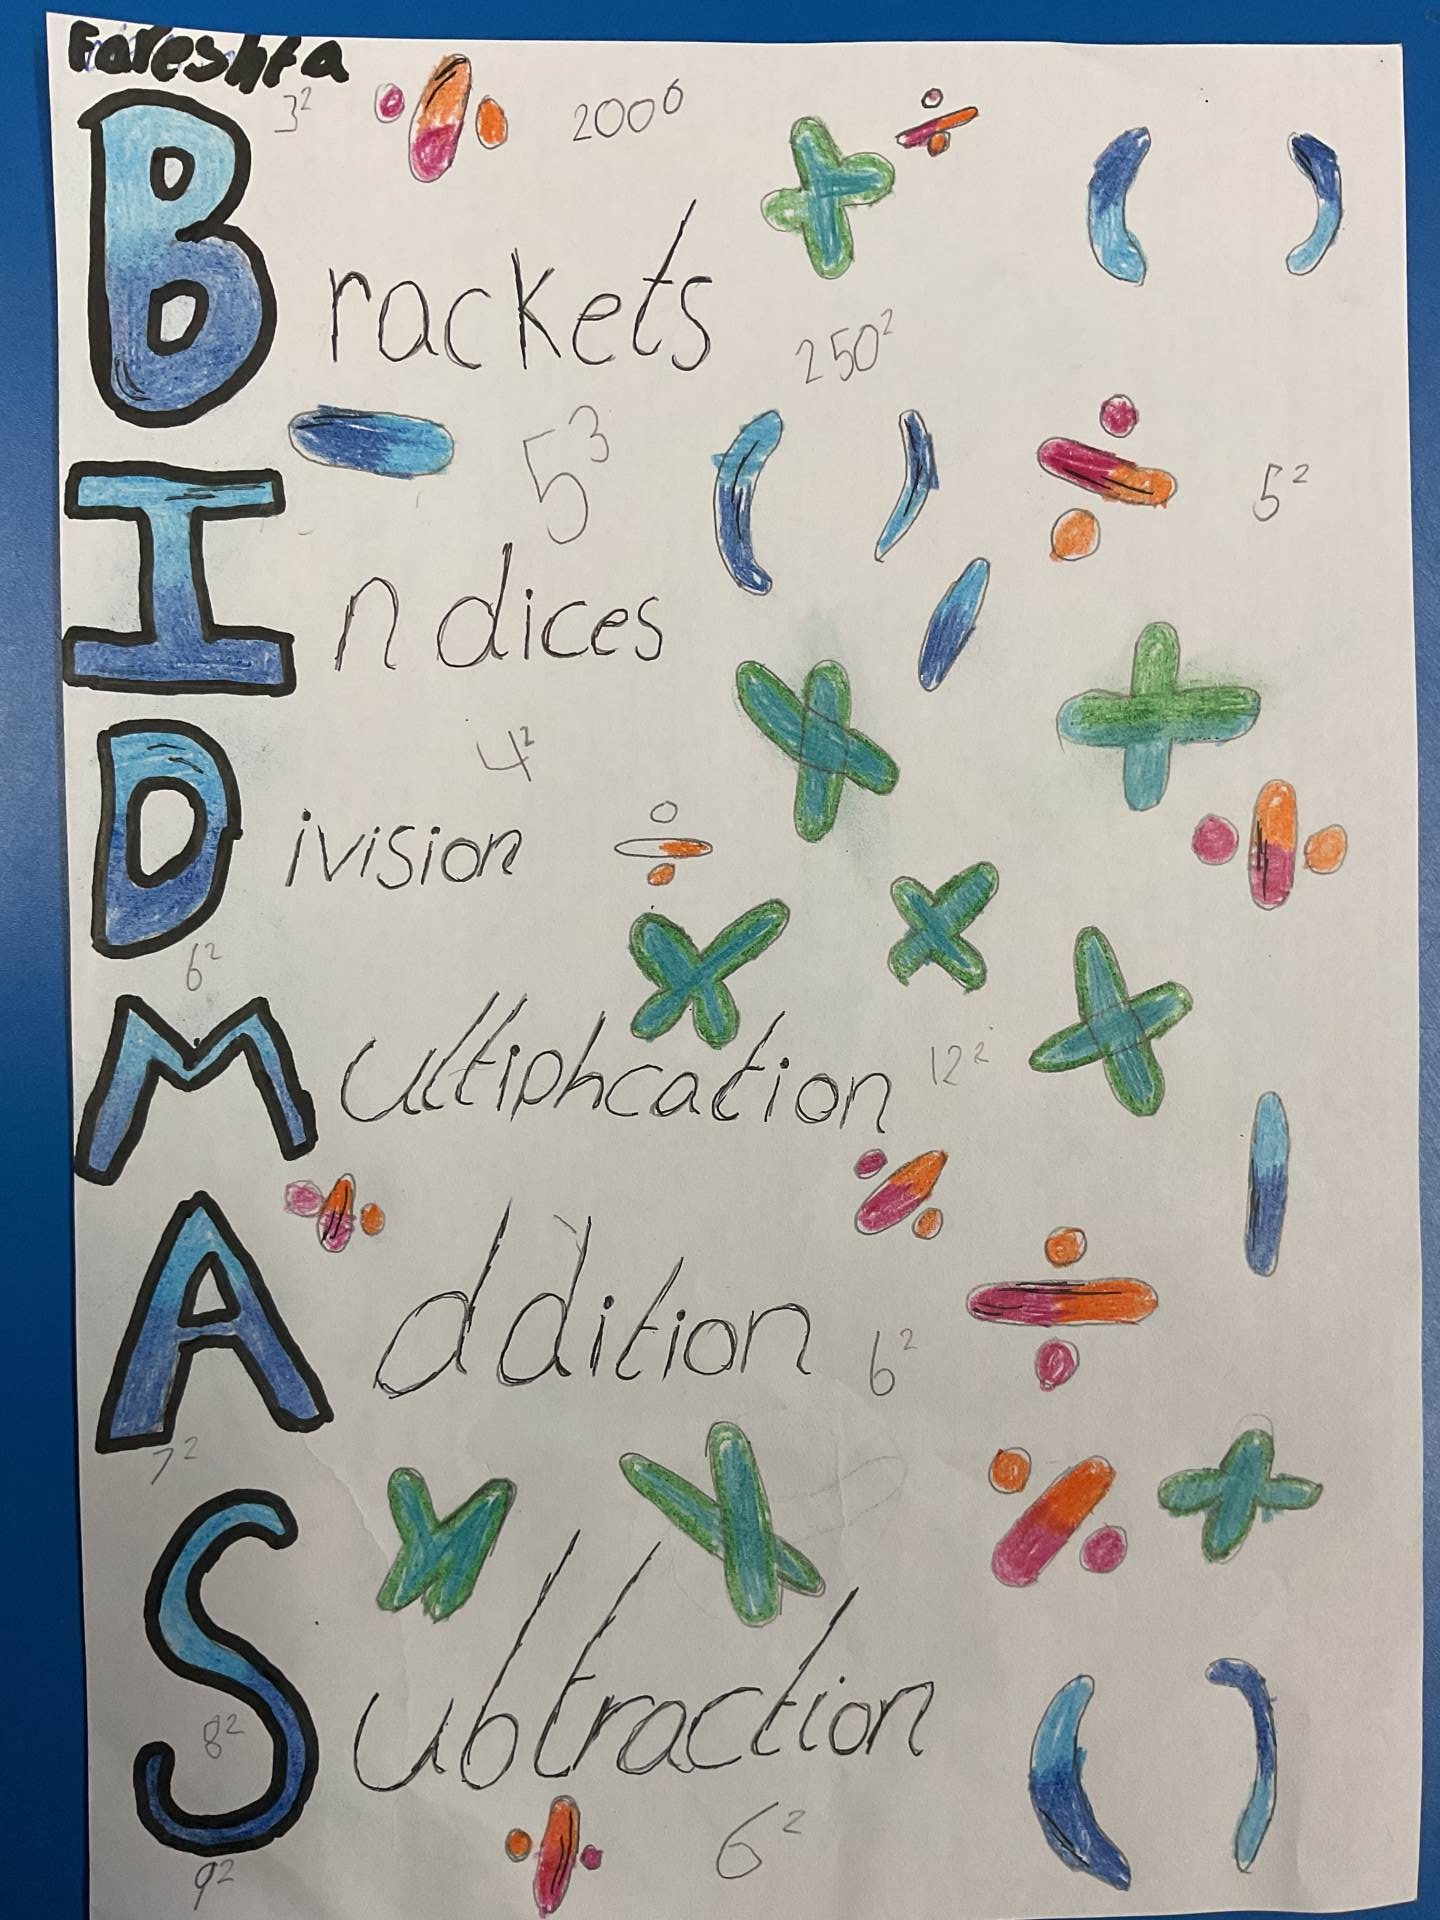 Fareshta
3²
2000⁶
Brackets
250²
5³
5²
Indices
4²
Division
6²
Multiplication
12²
Addition
6²
7²
Subtraction
8²
6²
9²